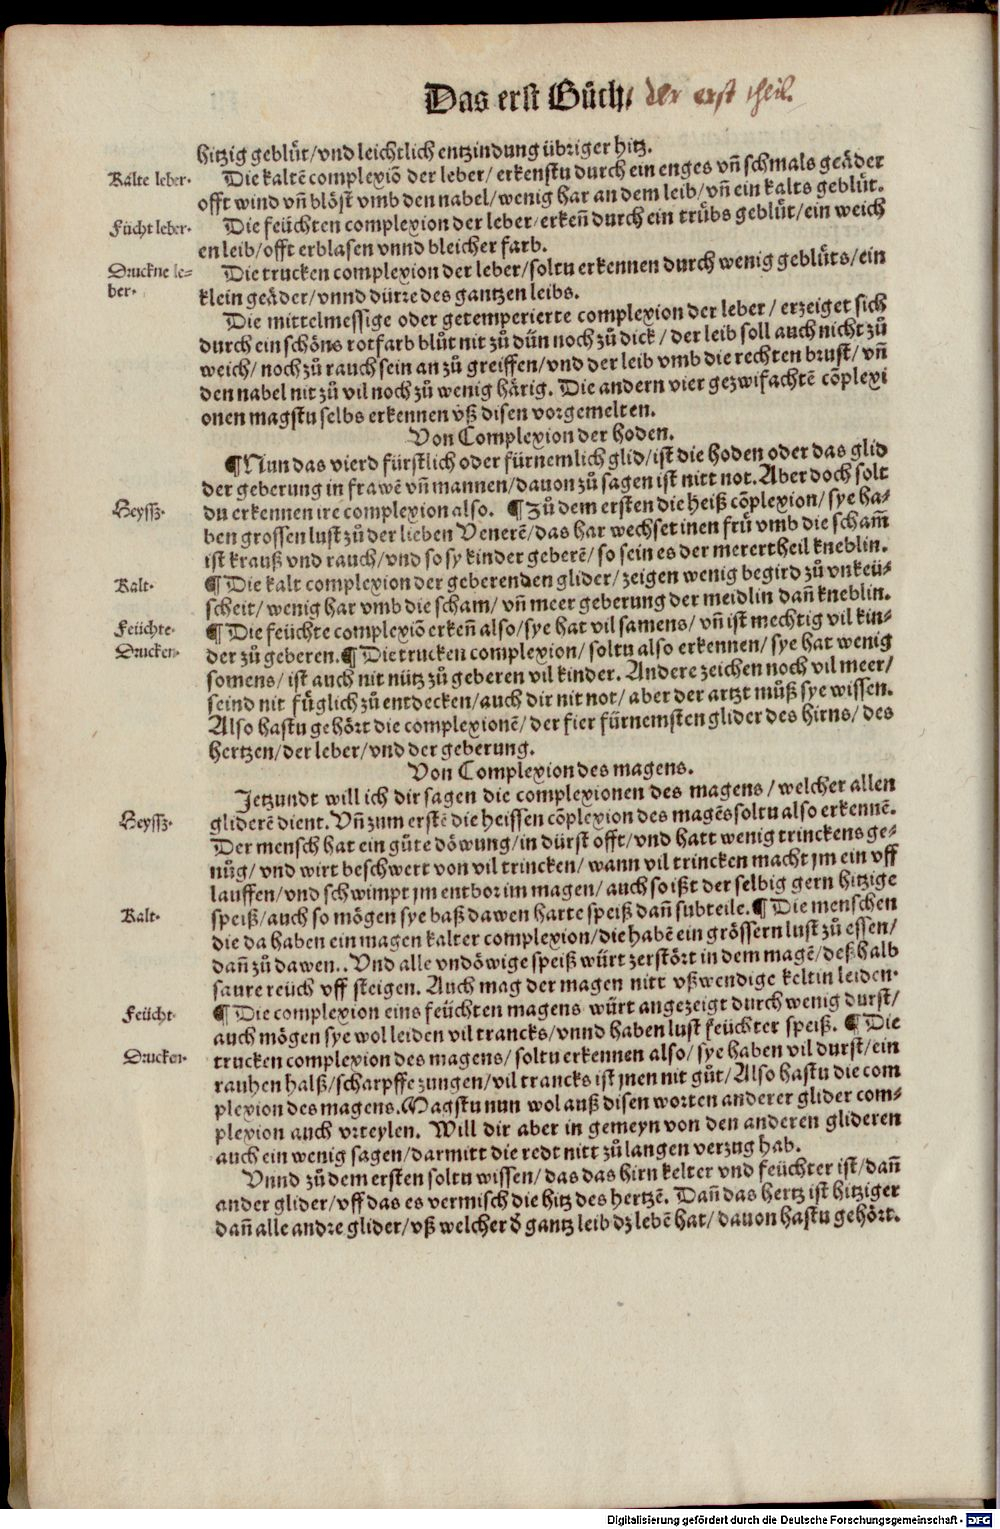 Das erst Bůch/ der erst theil.
hitzig geblůt/vnd leichtlich entzindung übriger hitz.
Kalte leber.
Die kaltē complexiō der leber/ erkenstu durch ein enges vñ schmals geäder
offt wind vñ blöst vmb den nabel/wenig har an dem leib/vñ ein kalts geblůt.
Fücht leber.
Die feüchten complexion der leber/erkeñ durch ein trübs geblůt/ein weich
en leib/offt erblasen vnnd bleicher farb.
Druckne le-
ber.
Die trucken complexion der leber/soltu erkennen durch wenig geblůts/ein
klein geäder/vnnd dürre des gantzen leibs.
Die mittelmessige oder getemperierte complexion der leber/ erzeiget sich
durch ein schöns rotfarb blůt nit zů dün noch zů dick/ der leib soll auch nicht zů
weich/ noch zů rauch sein an zů greiffen/vnd der leib vmb die rechten brust/ vñ
den nabel nit zů vil noch zů wenig härig. Die andern vier gezwifachtē cōplexi
onen magstu selbs erkennen vß disen vorgemelten.
Von Complexion der hoden.
¶Nun das vierd fürstlich oder fürnemlich glid/ist die hoden oder das glid
der geberung in frawē vñ mannen/dauon zů sagen ist nitt not. Aber doch solt
Heyssz.
du erkennen ire complexion also. ¶Zů dem ersten die heiß cōplexion/ sye ha-
ben grossen lust zů der lieben Venerē/das har wechset inen frů vmb die scham̄
ist krauß vnd rauch/vnd so sy kinder geberē/ so sein es der merertheil kneblin.
Kalt.
¶Die kalt complexion der geberenden glider/zeigen wenig begird zů vnkeü-
scheit/ wenig har vmb die scham/ vñ meer geberung der meidlin dañ kneblin.
Feüchte.
¶Die feüchte complexiō erkeñ also/sye hat vil samens/ vñ ist mechtig vil kin-
Drucken.
der zů geberen.¶Die trucken complexion/ soltu also erkennen/ sye hat wenig
somens/ ist auch nit nütz zů geberen vil kinder. Andere zeichen noch vil meer/
seind nit füglich zů entdecken/auch dir nit not/ aber der artzt můß sye wissen.
Also hastu gehört die complexionē/ der fier fürnemsten glider des hirns/ des
hertzen/der leber/vnd der geberung.
Von Complexion des magens.
Jetzundt will ich dir sagen die complexionen des magens/welcher allen
Heyssz.
gliderē dient. Vñ zum erstē die heissen cōplexion des magēs soltu also erkennē.
Der mensch hat ein gůte döwung/in dürst offt/vnd hatt wenig trinckens ge-
nůg/ vnd wirt beschwert von vil trincken/ wann vil trincken macht jm ein vff
lauffen/vnd schwimpt jm entbor im magen/ auch so ißt der selbig gern hitzige
Kalt.
speiß/auch so mögen sye baß dawen harte speiß dañ subteile.¶Die menschen
die da haben ein magen kalter complexion/die habē ein grössern lust zů essen/
dañ zů dawen.. Vnd alle vndöwige speiß würt zerstört in dem magē/deßhalb
saure reüch vff steigen. Auch mag der magen nitt vßwendige keltin leiden.
Feücht.
¶Die complexion eins feüchten magens würt angezeigt durch wenig durst/
auch mögen sye wol leiden vil trancks/vnnd haben lust feüchter speiß. ¶Die
Drucken.
trucken complexion des magens/ soltu erkennen also/ sye haben vil durst/ein
rauhen halß/scharpffe zungen/vil trancks ist jnen nit gůt/Also hastu die com
plexion des magens. Magstu nun wol auß disen worten anderer glider com-
plexion auch vrteylen. Will dir aber in gemeyn von den anderen glideren
auch ein wenig sagen/darmitt die redt nitt zů langen verzug hab.
Vnnd zů dem ersten soltu wissen/das das hirn kelter vnd feüchter ist/dañ
ander glider/vff das es vermisch die hitz des hertzē. Dañ das hertz ist hitziger
dañ alle andre glider/vß welcher d̄ gantz leib dz lebē hat/dauon hastu gehört.
Digitalisierung gefördert durch die Deutsche Forschungsgemeinschaft - DFG